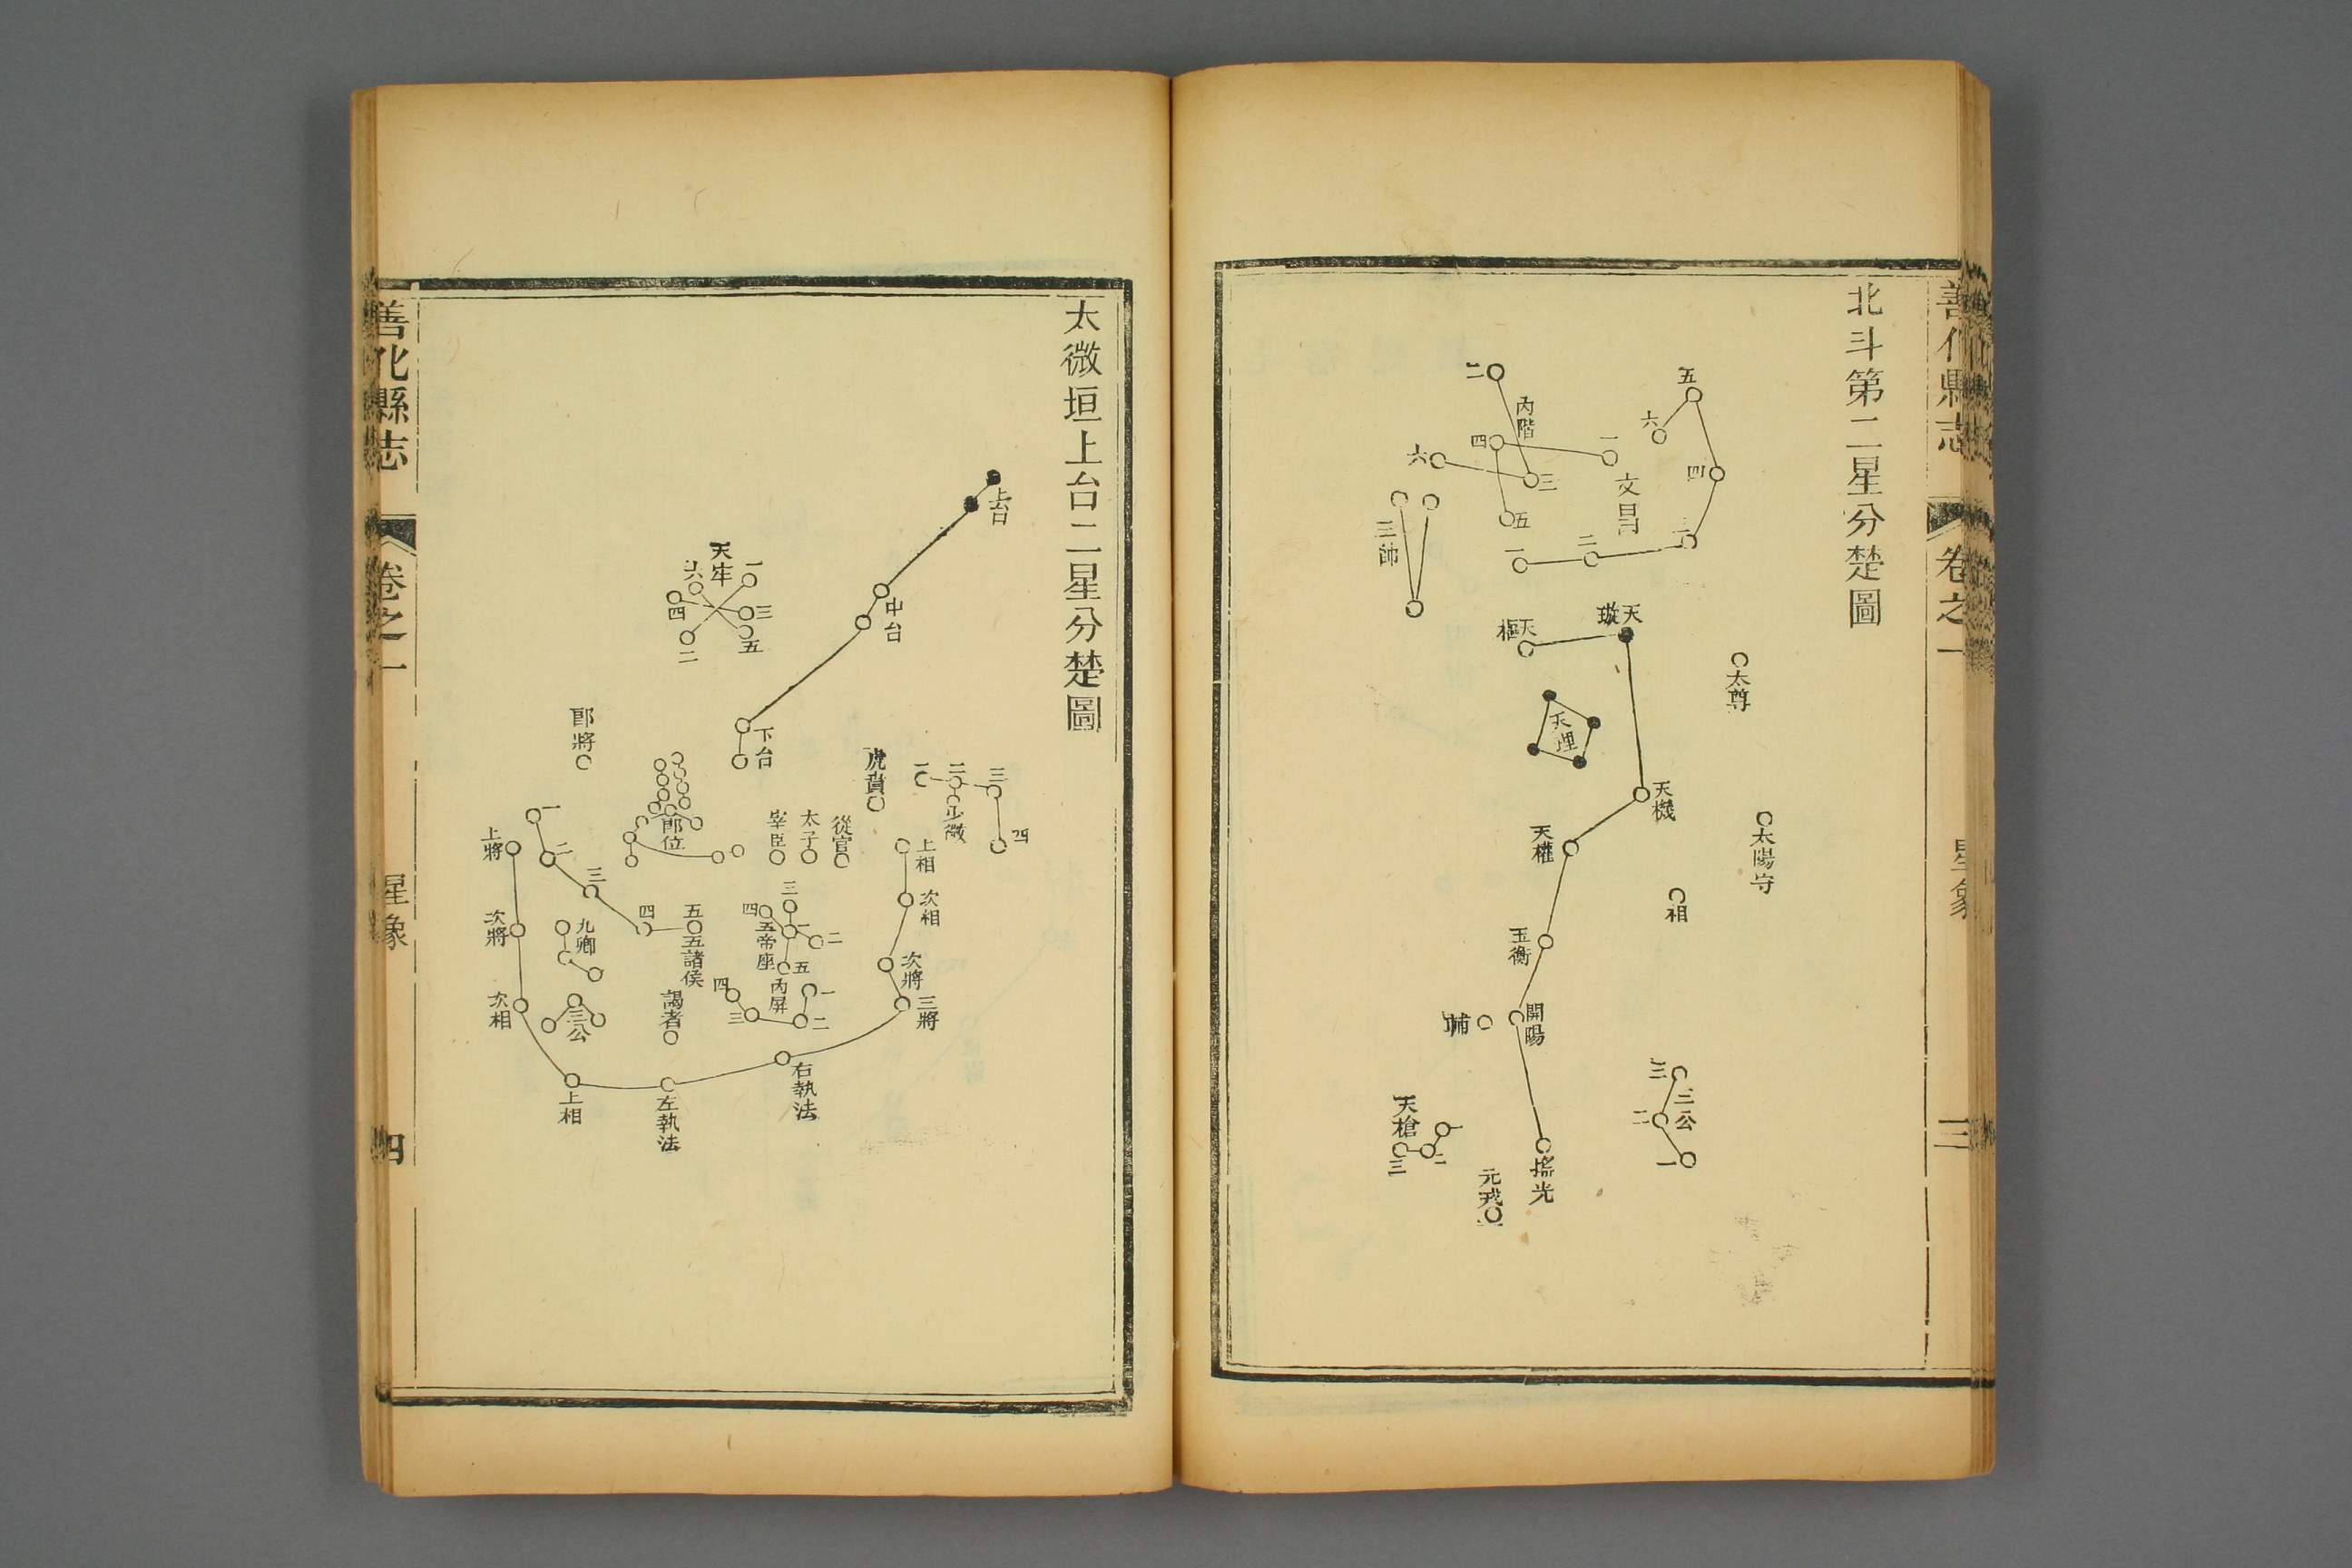 善化縣志
卷之一
星象
三
北斗第二星分楚圖
五
六
四
三
二
一
文昌
內階
一
二
三
四
五
六
三師
天璇
天樞
天理
太尊
天機
天權
太陽守
相
玉衡
開陽
輔
三公
三
二
一
搖光
天槍
一
二
三
元戎
太微垣上台二星分楚圖
上台
中台
下台
天牢
一
二
三
四
五
六
郎將
虎賁
少微
一
二
三
四
郎位
從官
太子
宰臣
上相
次相
次將
三將
右執法
左執法
上相
次相
次將
上將
一
二
三
四
五
五諸侯
九卿
三公
謁者
五帝座
一
二
三
四
五
內屏
一
二
三
四
善化縣志
卷之一
星象
四